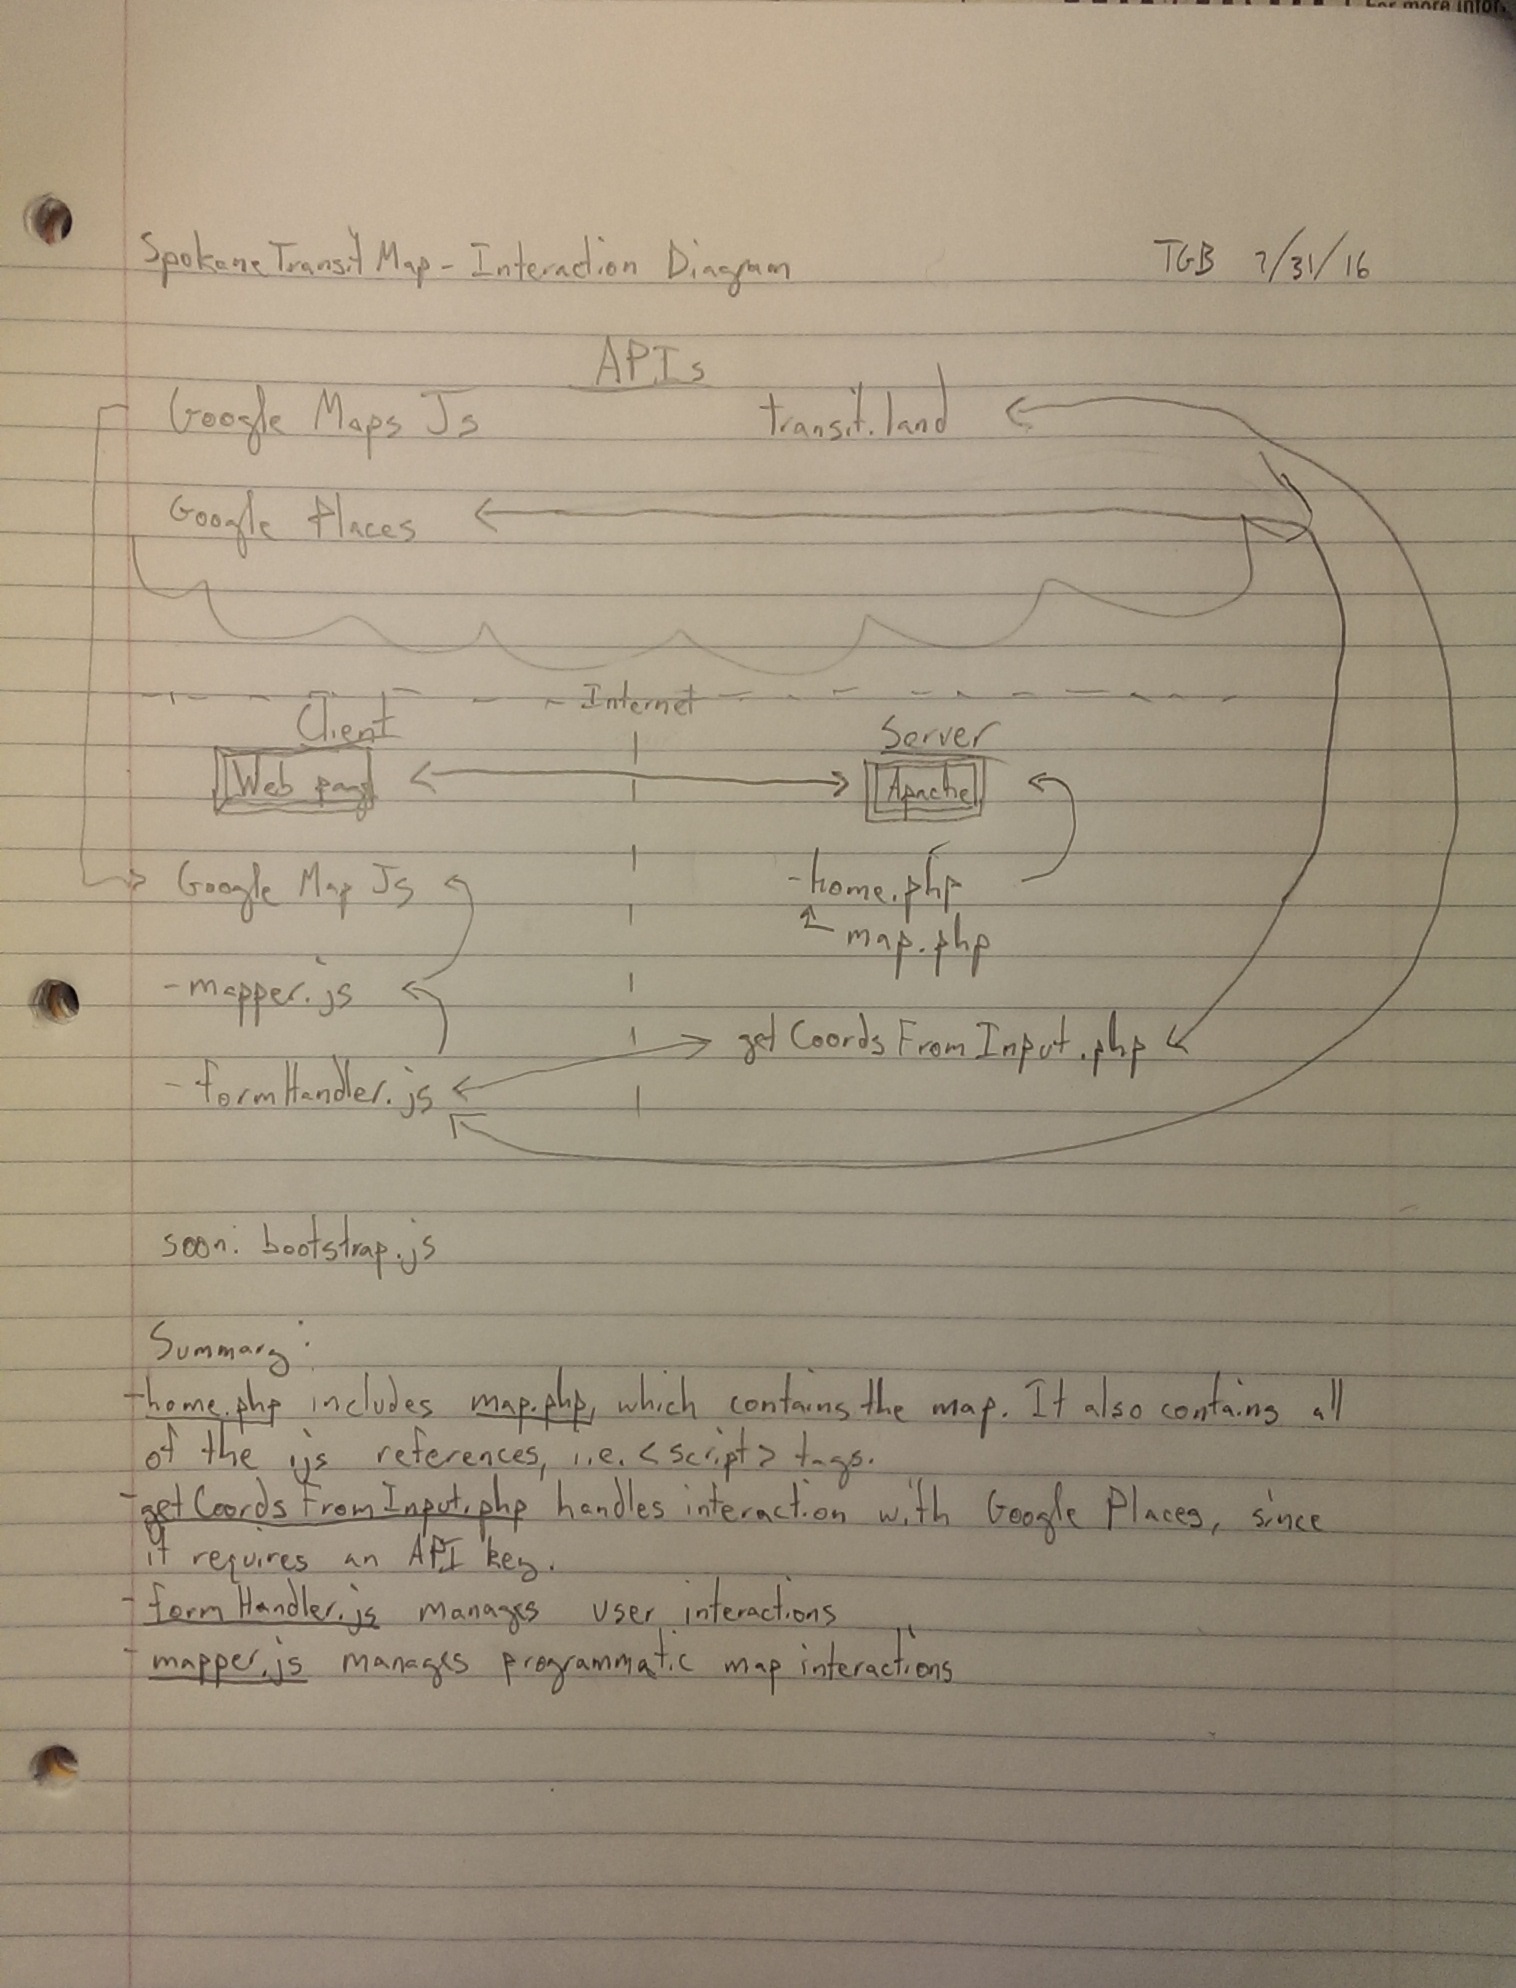 For more infor
SpokaneTransit Map - Interaction Diagram TGB 7/31/16
APIs
Google Maps Js transit.land
Google Places
Internet
Client Server
Web page Apache
Google Map Js -home.php
map.php
-mapper.js
getCoordsFromInput.php
-formHandler.js
soon: bootstrap.js
Summary:
-home.php includes map.php, which contains the map. It also contains all
of the js references, i.e. <script> tags.
-getCoordsFromInput.php handles interaction with Google Places, since
it requires an API key.
-formHandler.js manages user interactions
-mapper.js manages programmatic map interactions